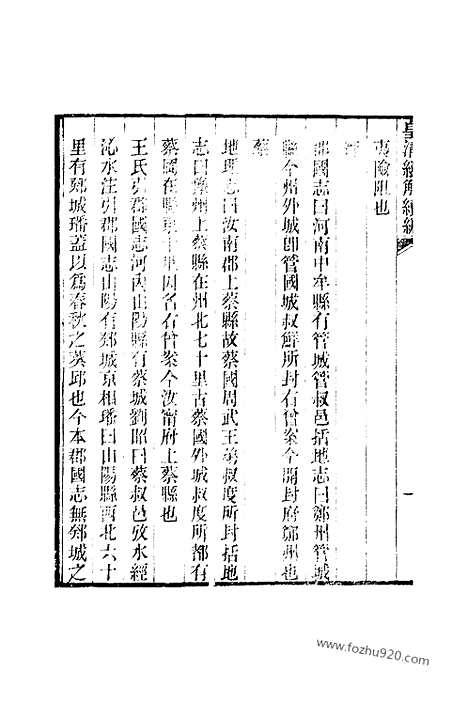 皇清經解續編
夷險阻也
管
郡國志曰河南中牟縣有管城管叔邑括地志曰鄭州管城
縣今州外城卽管國城叔鮮所封右曾案今開封府鄭州也
蔡
地理志曰汝南郡上蔡縣故蔡國周武王弟叔度所封括地
志曰豫州上蔡縣在州北七十里古蔡國外城叔度所都有
蔡岡在縣東十里因名右曾案今汝甯府上蔡縣也
王氏引郡國志河內山陽縣有蔡城劉昭曰蔡叔邑攷水經
沁水注引郡國志山陽有郟城京相璠曰山陽縣西北六十
里有郟城璠蓋以爲春秋之蔡邱也今本郡國志無郟城之
一
www.fozhu920.com